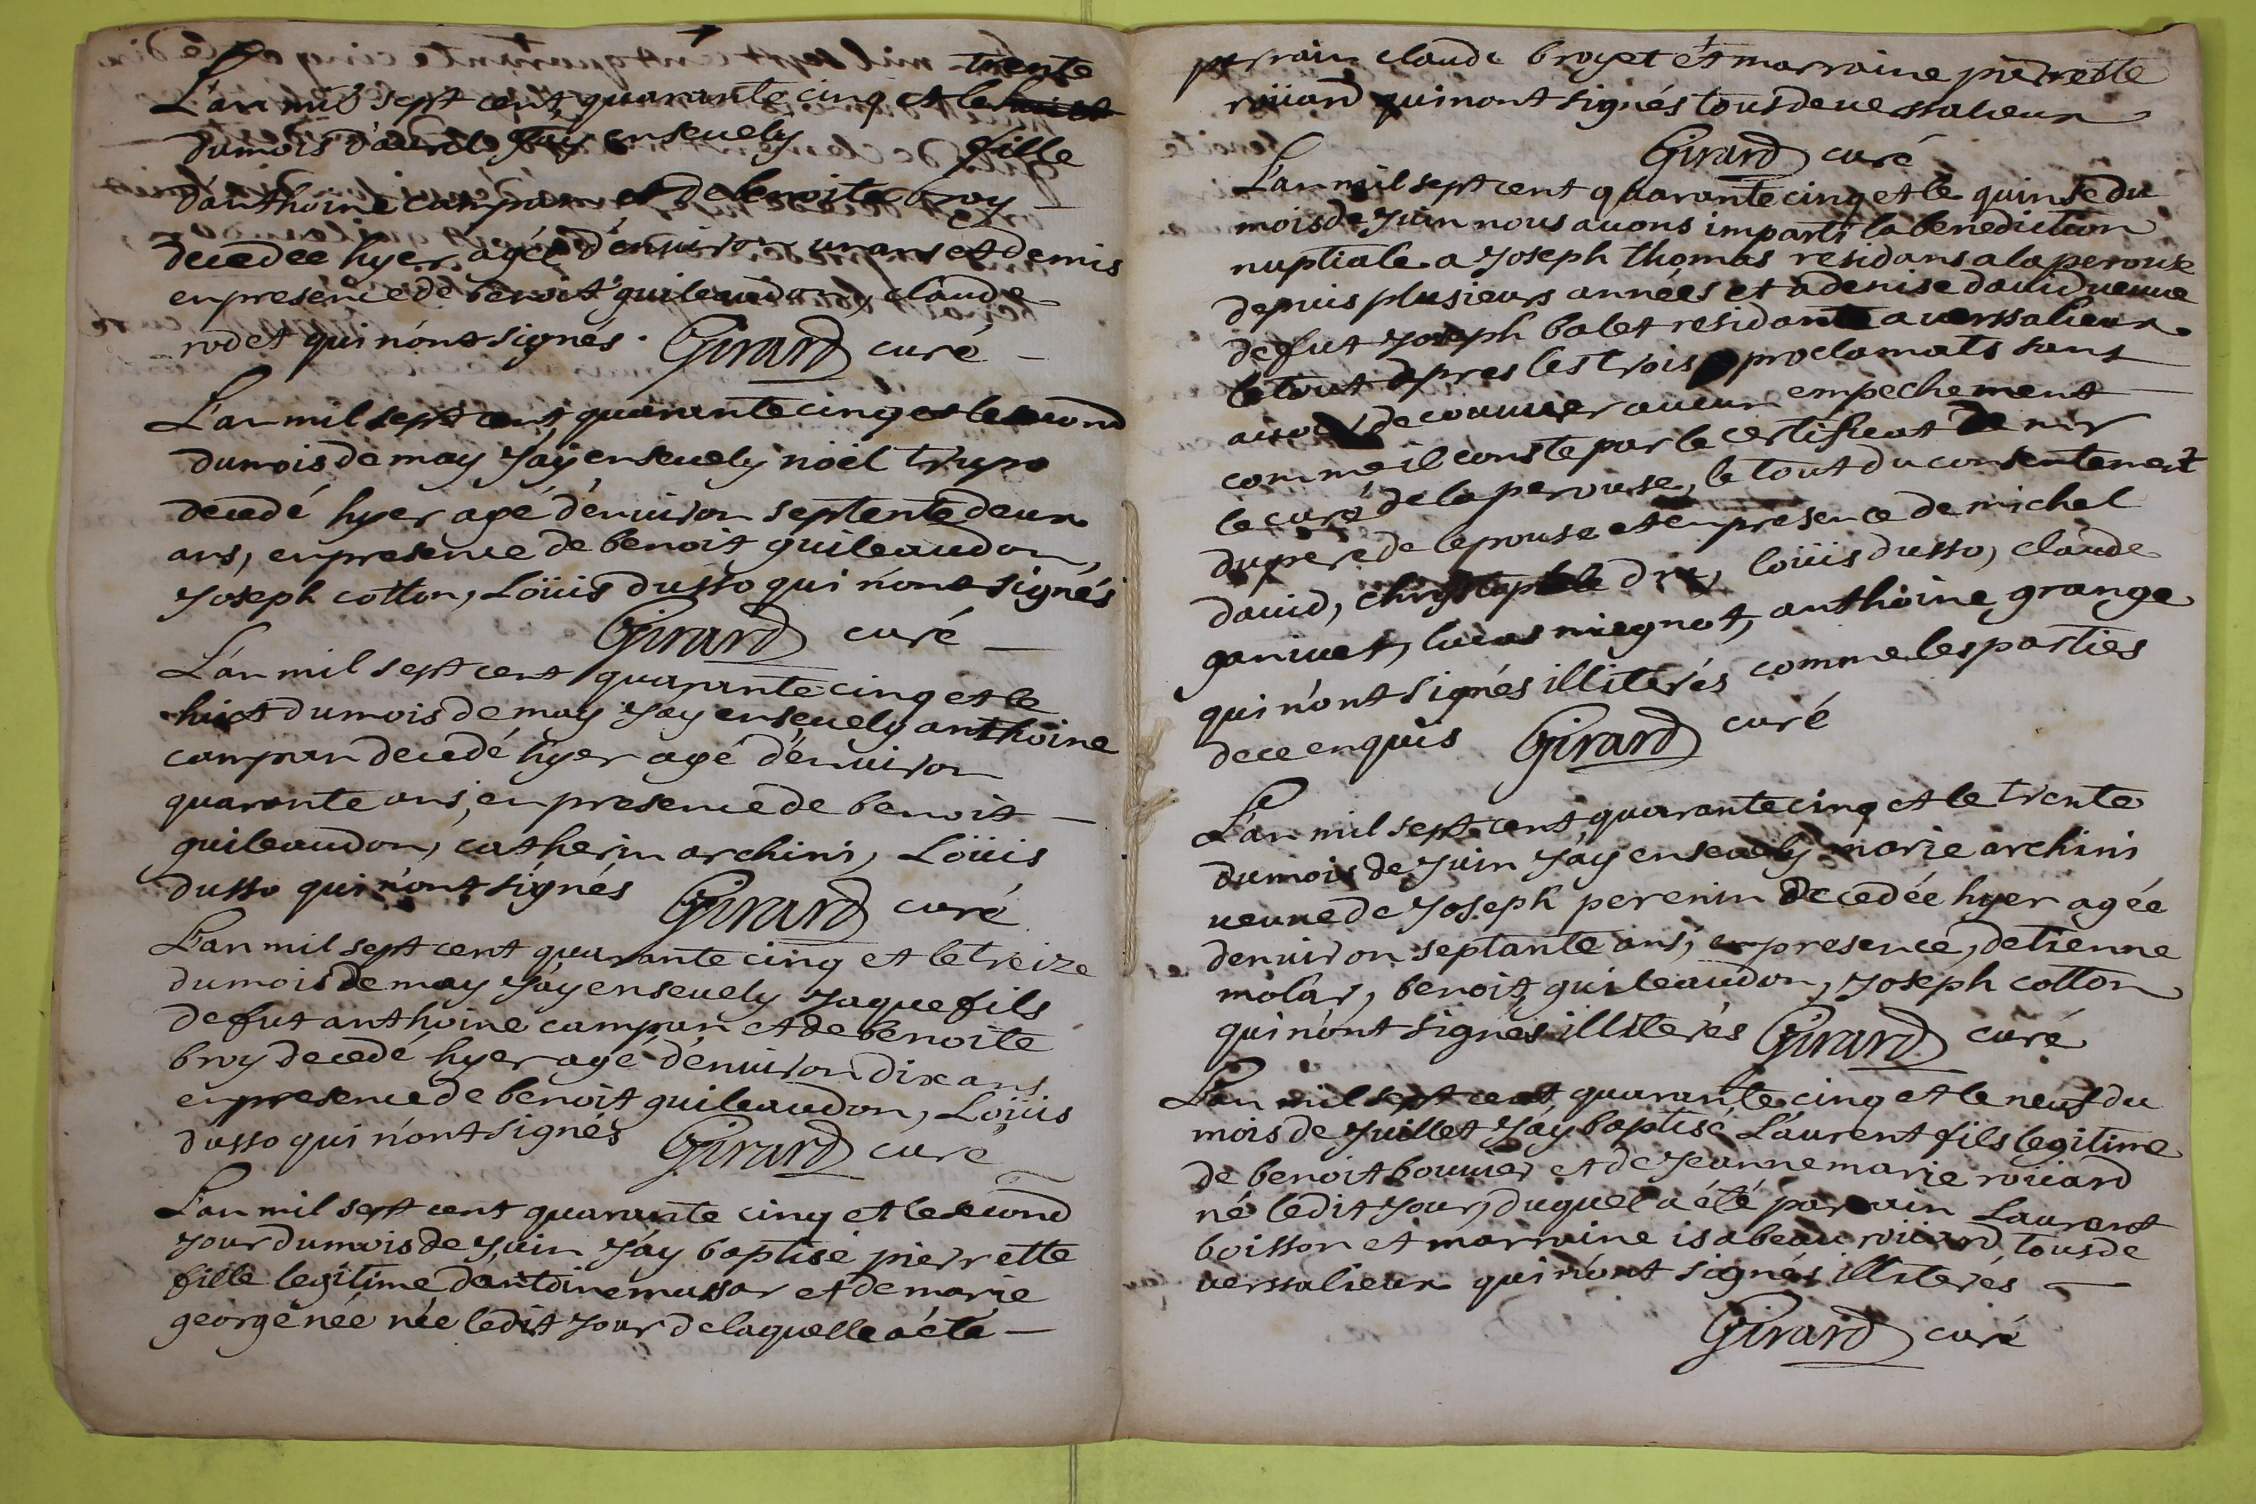 trente
L'an mil sept cent quarante cinq et le huict
du mois d'avril j'ay ensevely fille
d'anthoine campan et de benoite broy
decedée hyer agée d'environ un ans et demis
en presence de benoit guileaudon, claude
rodet qui n'ont signés. Girard curé
L'an mil sept cent quarante cinq et le second
du mois de may j'ay ensevely noël trupo
decedé hyer agé d'environ septente deux
ans, en presence de benoit guileaudon,
Joseph cotton, Loüis dusso qui n'ont signés
Girard curé
L'an mil sept cent quarante cinq et le
huict du mois de may j'ay ensevely anthoine
campan decedé hyer agé d'environ
quarante ans, en presence de benoit
guileaudon, catherin archini, Loüis
dusso qui n'ont signés Girard curé
L'an mil sept cent quarante cinq et le treize
du mois de may j'ay ensevely Jaque fils
de fut anthoine campan et de benoite
broy decedé hyer agé d'environ dix ans
en presence de benoit guileaudon, Loüis
dusso qui n'ont signés Girard curé
L'an mil sept cent quarante cinq et le second
jour du mois de Juin j'ay baptisé pierrette
fille legitime d'antoine mussar et de marie
george née née ledit jour de laquelle a été
parrain claude broyet et marraine pierrette
roüard qui n'ont signés tous de verssalieux
Girard curé
L'an mil sept cent quarante cinq et le quinse du
mois de Juin nous avons imparti la benediction
nuptiale a Joseph thomas residans a la perouse
depuis plusieurs années et a denise david veuve
de fut Joseph balet residante a verssalieux
le tout apres les trois proclamats sans
avoir decouvver aucun empechement
comme il conste par le certificat de mr
le curé de la perouse, le tout du consentement
du pere de lepouse et en presence de michel
david, chrystophle dre, loüis dusso, claude
ganivet, lucas miegnot, anthoine grange
qui n'ont signés illiterés comme les parties
de ce enquis Girard curé
L'an mil sept cent quarante cinq et le trente
du mois de Juin j'ay ensevely marie archini
veuve de Joseph perenin decedée hyer agée
denviron septante ans, en presence, detienne
molar, benoit guileaudon, Joseph cotton
qui n'ont signés illiterés Girard curé
L'an mil sept cent quarante cinq et le neuf du
mois de Juillet j'ay baptisé Laurent fils legitime
de benoit bouvier et de Jeanne marie roüard
né ledit jour, duquel a été parrain Laurant
boisson et marraine isabeau roüard, tous de
verssalieux qui n'ont signés illiterés
Girard curé